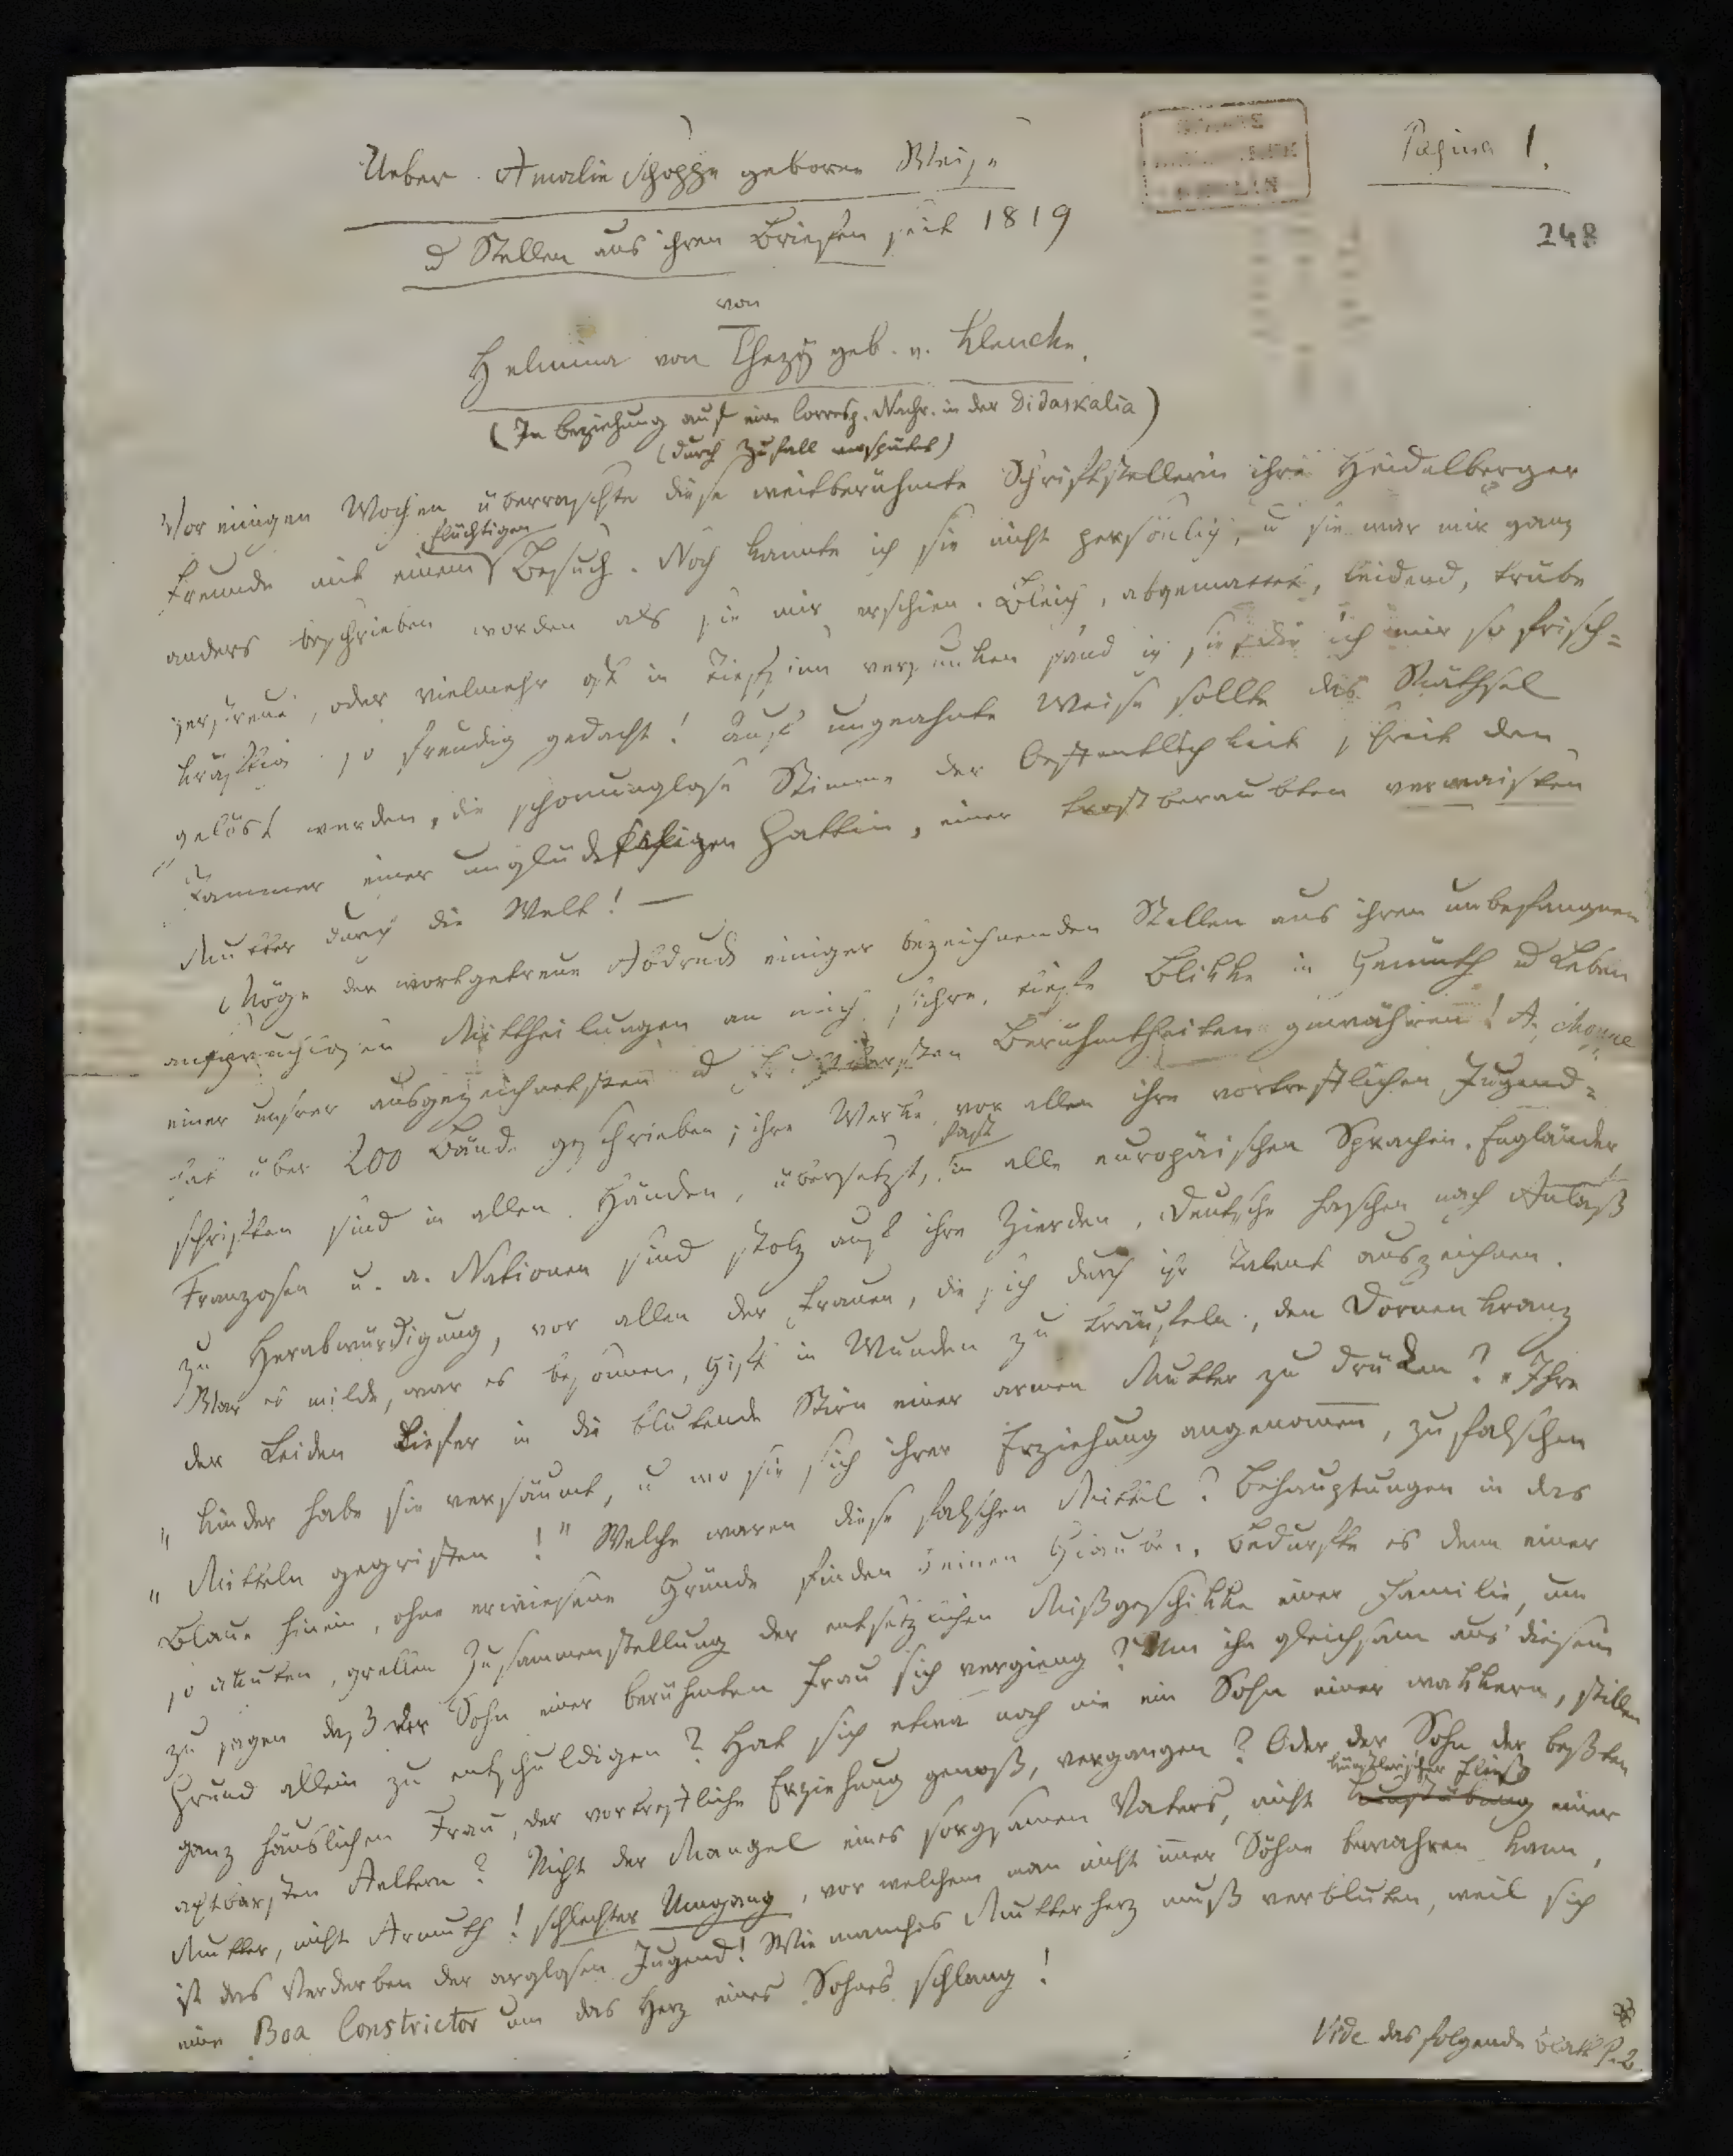 Pagina 1.
248
Ueber Amalie Schoppe geborne Weise
d Stellen aus ihren Briefen seit 1819
von
Helmina von Chezÿ geb. v. Klencke.
(In Beziehung auf eine Corresp. Nachr. in der Didaskalia)
(durch Zufall verspätet)
Vor einigen Wochen überraschte diese weitberühmte Schriftstellerin ihre Heidelberger
flüchtigen
Freunde mit einem Besuch. Noch kannte ich sie nicht persönlich, u sie war mir ganz
anders beschrieben worden als sie mir erschien. Bleich, abgemattet, leidend, trübe
zerstreut, oder vielmehr oft in Tiefsinn versunken fand ich sie, die ich mir so frisch-
kräftig so freudig gedacht! Auf ungeahnte Weise sollte das Räthsel
gelöst werden, die schonungslose Stimme der Oeffentlichkeit schreit den
Jammer einer unglückseligen Gattin, einer trostberaubten verwaisten
Mutter durch die Welt! —
Möge der wortgetreue Abdruck einiger bezeichnenden Stellen aus ihren unbefangnen
anspruchlosen Mittheilungen an mich sichre, tiefe Blikke in Gemüth ud Leben
einer unsrer ausgezeichnetsten ud Berühmtheiten gewähren! A.
hat über 200 Bände geschrieben; ihre Werke, vor allen ihre vortrefflichen Jugend-
fast
schriften sind in allen Händen, übersetzt, in alle europäischen Sprachen. Engländer,
Franzosen u. a. Nationen sind stolz auf ihre Zierden, Deutsche haschen nach Anlaß
zu Herabwürdigung, vor allen der Frauen, die sich durch ihr Talent auszeichnen.
War es milde, war es besonnen, Gift in Wunden zu träufeln, den Dornenkranz
der Leiden tiefer in die blutende Stirn einer armen Mutter zu drücken? „Ihre
„Kinder habe sie versäumt, u wo sie sich ihrer Erziehung angenommen, zu falschen
„Mitteln gegriffen!" Welche waren diese falschen Mittel? Behauptungen in das
Blaue hinein, ohne erwiesene Gründe finden keinen Glauben. Bedurfte es denn einer
so akuten, grellen Zusammenstellung der entsetzlichen Mißgeschikke einer Familie, um
zu sagen daß der Sohn einer berühmten Frau sich vergieng? Um ihn gleichsam aus diesem
Grund allein zu entschuldigen? Hat sich etwa noch nie ein Sohn einer wakkern, stillen
ganz häuslichen Frau, der vortreffliche Erziehung genoß, vergangen? Oder der Sohn der beßten
künstlerischer Fleiß
achtbarsten Aeltern? Nicht der Mangel eines sorgsamen Vaters, nicht Kunstübung einer
Mutter, nicht Armuth! schlechter Umgang, vor welchem man nicht imer Söhne bewahren kann,
ist das Verderben der arglosen Jugend! Wie manches Mutterherz muß verbluten, weil sich
eine Boa Constrictor um das Herz eines Sohnes schlang!
Vide das folgende Blatt P. 2